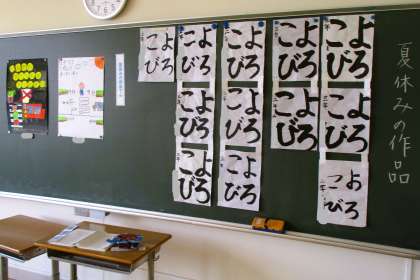 夏休みの作品
よろ
こび
よろ
こび
よろ
こび
よろ
こび
よろ
こび
よろ
こび
よろ
こび
よろ
こび
よろ
こび
よろ
こび
よろ
こび
よろ
こび